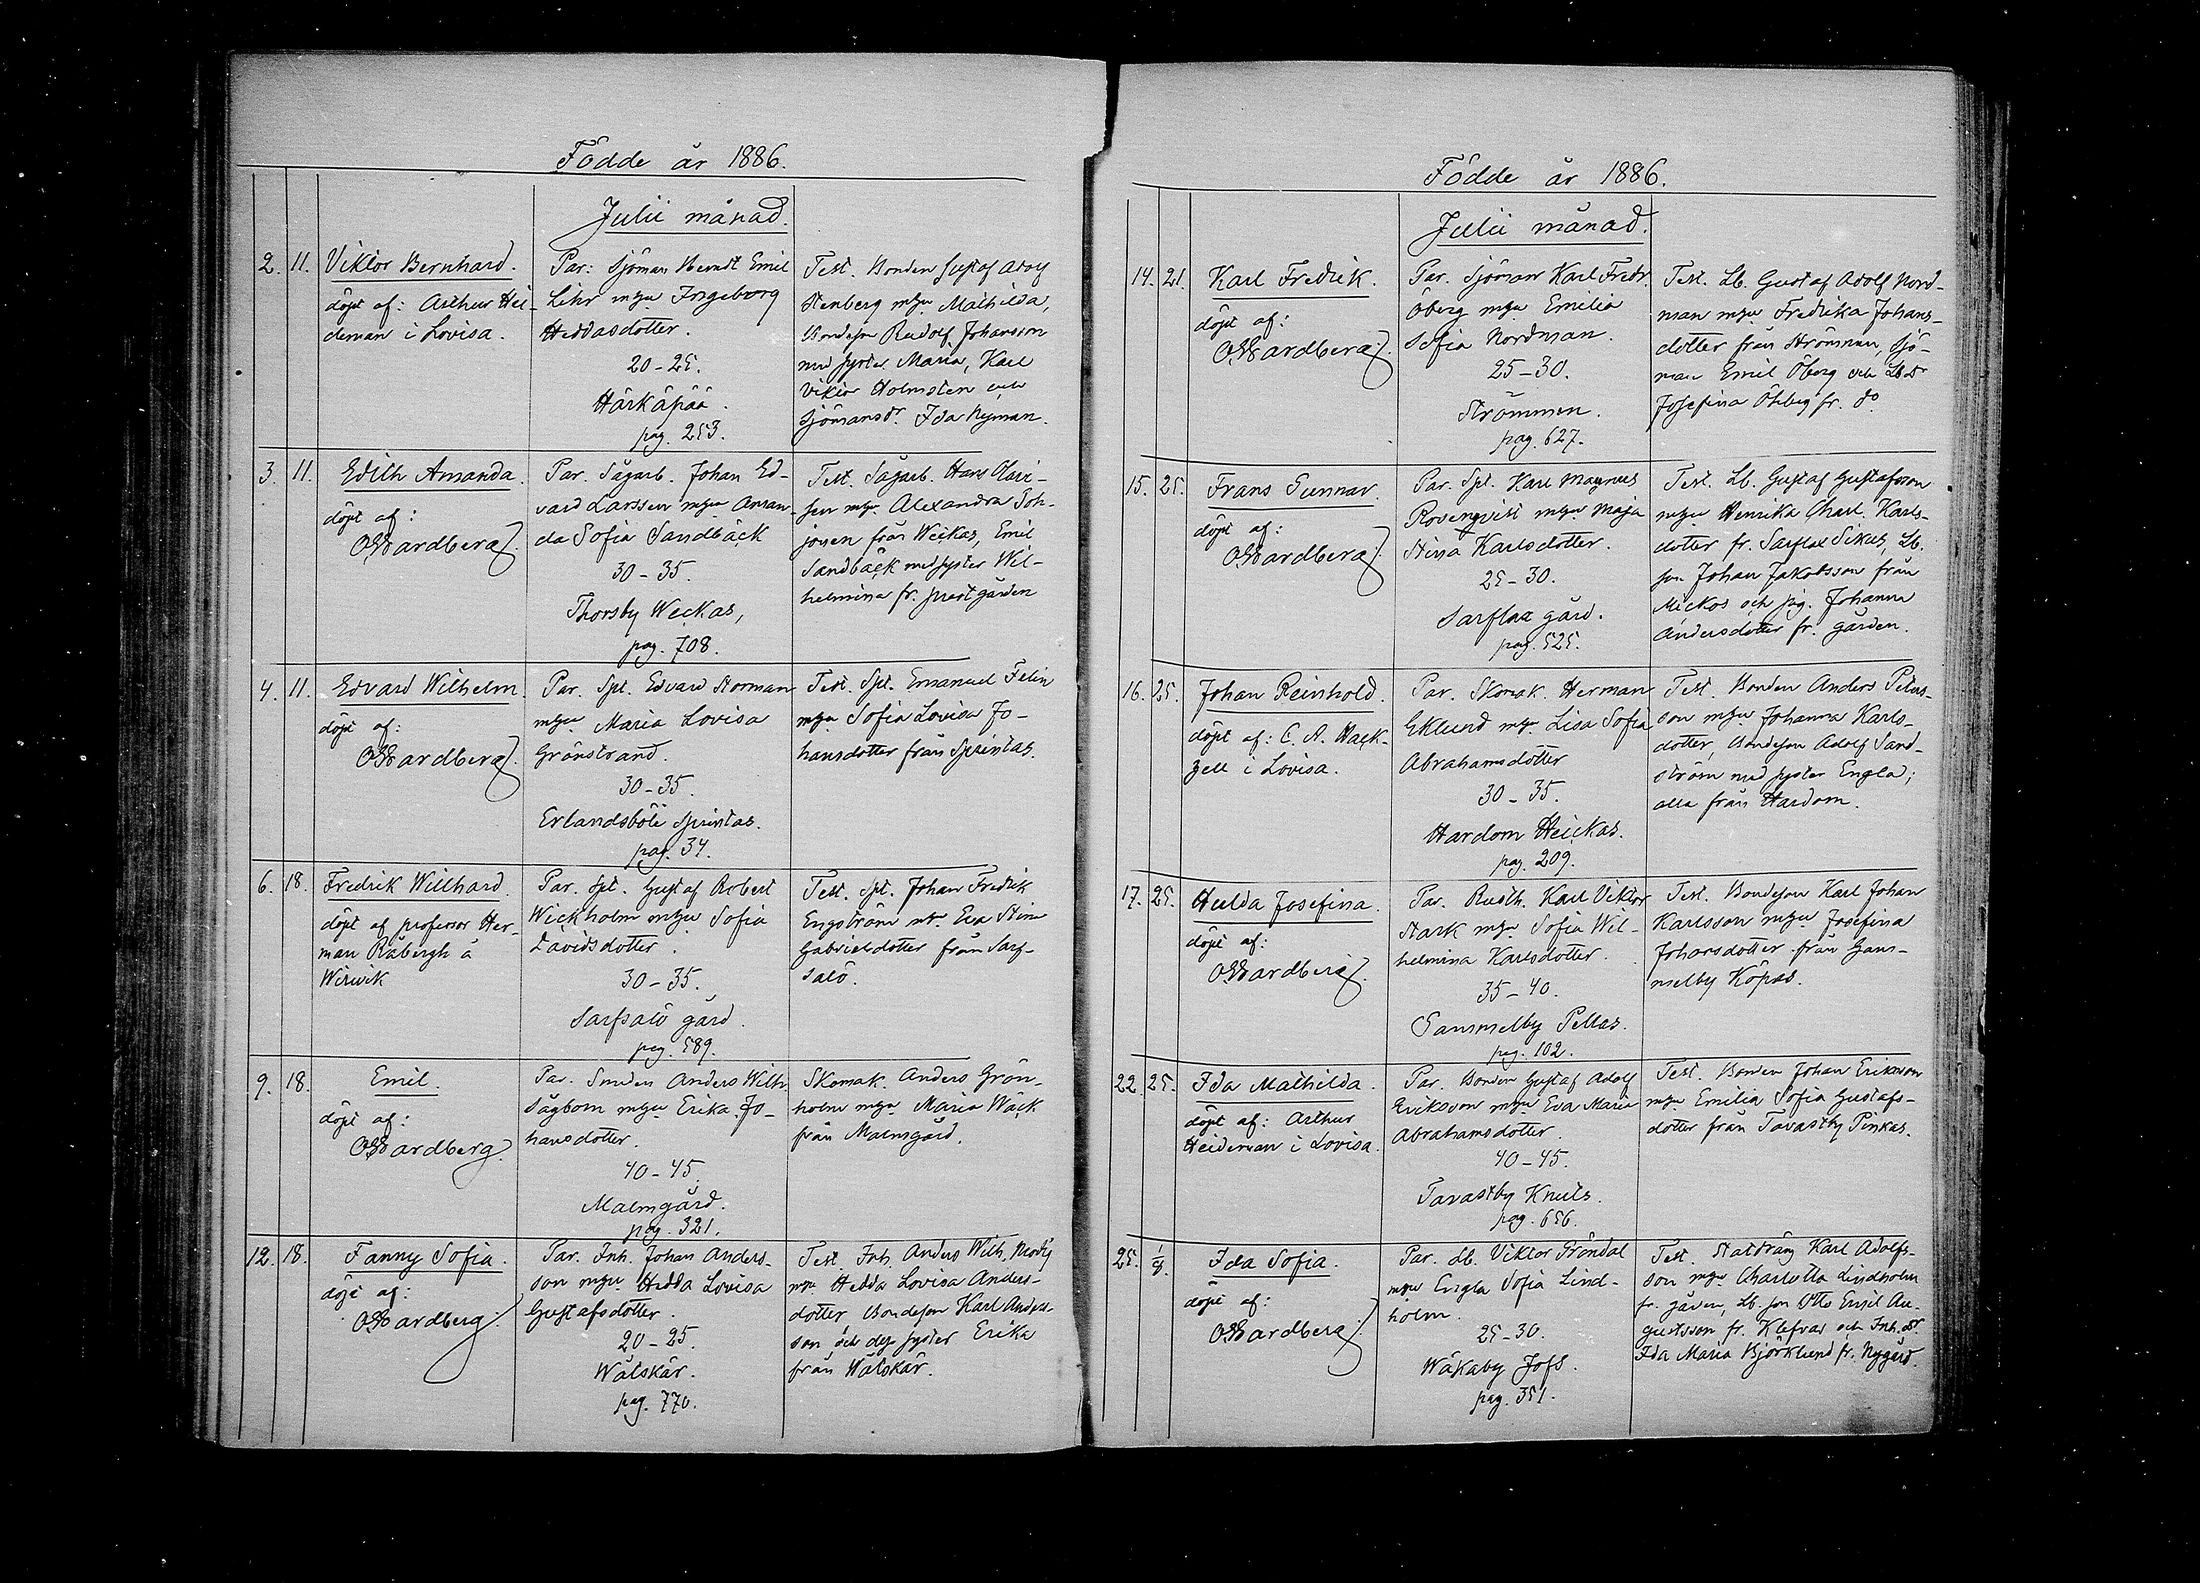 Födde år 1886.
Julii månad.
2. 11. Viktor Bernhard.
döpt af: Arthur Hei-
deman i Lovisa.
Par: Sjöman Berndt Emil
Lihr m hu Ingeborg
Heddasdotter.
20-25.
Härkäpää.
pag. 253.
Test. Bonden Gustaf Adolf
Stenberg m hu Mathilda,
Bondeson Rudolf Johansson
med syster Maria, Karl
Viktor Holmsten och
Sjömansdr Ida Nyman.
3. 11. Edith Amanda.
döpt af:
O Wardberg.
Par. Sågarb. Johan Ed-
vard Larsson m hu Aman-
da Sofia Sandbäck
30-35.
Thorsby Weckas,
pag. 708.
Test. Sågarb. Hans
m hu Alexandra Joh-
från Weckas, Emil
Sandbäck med syster Wil-
helmina fr. prestgården
4. 11. Edvard Wilhelm.
döpt af:
O Wardberg.
Par. Spt. Edvard Storman
m hu Maria Lovisa
Grönstrand.
30-35.
Erlandsböle Sprintas.
pag. 34.
Test. Spt. Emanuel Felin
m hu Sofia Lovisa Jo-
hansdotter från Sprintas.
6. 18. Fredrik Willhard.
döpt af professor Her-
man Råbergh å
Wirwik
Par. Spt. Gustaf Robert
Wickholm m hu Sofia
Davidsdotter.
30-35.
Sarfsalö gård.
pag. 589.
Test. Spt. Johan Fredrik
Engström m hu Eva Stina
Gabrielsdotter från Sarf-
salö.
9. 18. Emil.
döpt af:
O Wardberg.
Par. Smeden Anders Wilh
Sågbom m hu Erika Jo-
hansdotter.
40-45.
Malmgård.
pag. 321.
Skomak. Anders Grön-
holm m hu Maria Wäck
från Malmgård.
12. 18. Fanny Sofia.
döpt af:
O Wardberg.
Par. Inh. Johan Anders-
son m hu Hedda Lovisa
Gustafsdotter.
20-25.
Wätskär.
pag. 770.
Test. Inh. Anders Wilh.
m hu Hedda Lovisa Anders-
dotter, Bondeson Karl Anders-
son och dess syster Erika
från Wätskär.
Födde år 1886.
Julii månad.
14. 21. Karl Fredrik.
döpt af:
O Wardberg.
Par. Sjöman Karl Fredr.
Öberg m hu Emilia
Sofia Nordman.
25-30.
Strömmen.
pag. 627.
Test. Lb. Gustaf Adolf Nord-
man m hu Fredrika Johans-
dotter från Strömmen, Sjö-
man Emil Öberg och Lb dr
Josefina Öberg fr. do
15. 25. Frans Gunnar.
döpt af:
O Wardberg.
Par. Spt. Karl Magnus
Rosenqvist m hu Maja
Stina Karlsdotter.
25-30.
Sarflax gård.
pag. 525.
Test. Lb. Gustaf Gustafsson
m hu Henrika Charl. Karls-
dotter fr. Sarflax Sikus, Lb.
son Johan Jakobsson från
Mickos och pig. Johanna
Andersdotter fr. gården.
16. 25. Johan Reinhold.
döpt af: C. A. Hack-
zell i Lovisa.
Par. Skomak. Herman
Eklund m hu Lisa Sofia
Abrahamsdotter
30-35.
Hardom Heickas.
pag. 209.
Test. Bonden Anders Peters-
son m hu Johanna Karls-
dotter, Bondeson Adolf Sand-
ström med syster Engla;
alla från Hardom.
17. 25. Hulda Josefina.
döpt af:
O Wardberg.
Par. Rusth. Karl Viktor
Stark m hu Sofia Wil-
helmina Karlsdotter.
35-40.
Gammelby Pellas.
pag. 102.
Test. Bondeson Karl Johan
Karlsson m hu Josefina
Johansdotter från Gam-
melby Köpas.
22. 25. Ida Mathilda.
döpt af: Arthur
Heideman i Lovisa.
Par. Bonden Gustaf Adolf
Eriksson m hu Eva Maria
Abrahamsdotter.
40-45.
Tavastby Knuts.
pag. 656.
Test. Bonden Johan Eriksson
m hu Emilia Sofia Gustafs-
dotter från Tavastby Pinkas.
25. 1/8. Ida Sofia.
döpt af:
O Wardberg.
Par. Lb. Viktor Gröndal
m hu Engla Sofia Lind-
holm.
25-30.
Wäkaby Jofs.
pag. 351.
Test. Statdräng Karl Adolfs-
son m hu Charlotta Lindholm
fr. gården, Lb. son Otto Emil Au-
gustsson fr. Klefvas och Inh. dr
Ida Maria Björklund fr. Nygård.